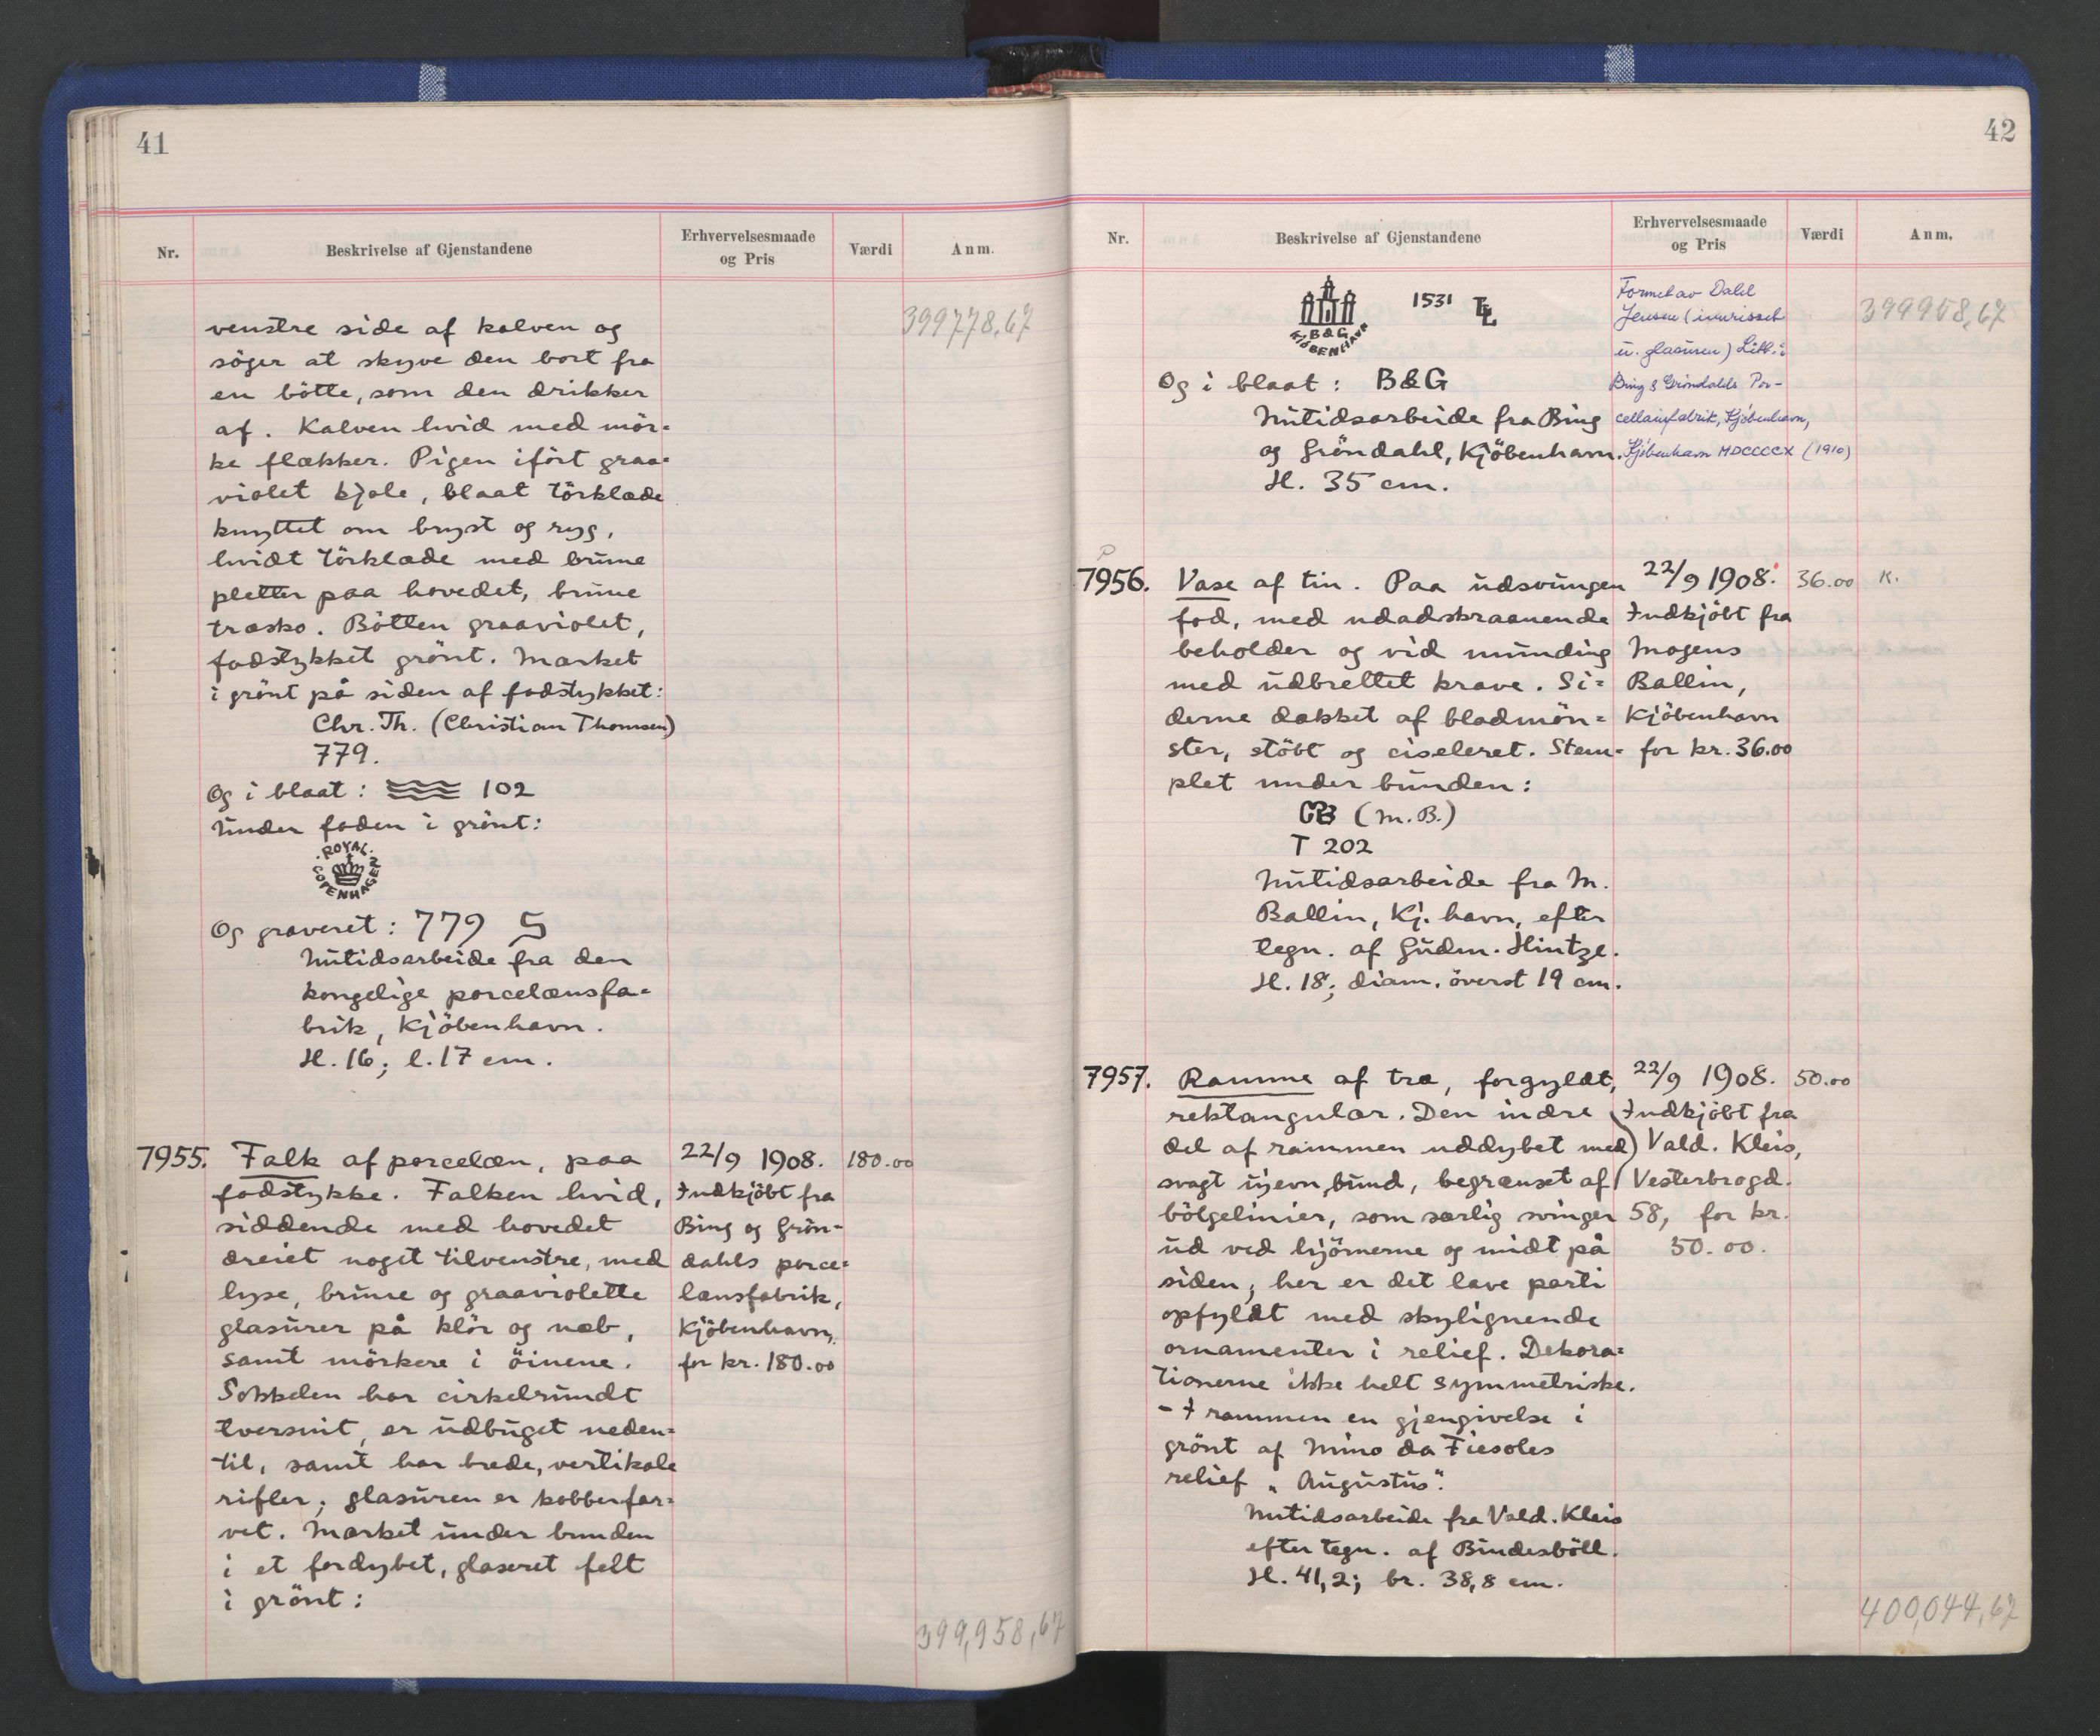 41
Nr.
Beskrivelse af Gjenstandene
Erhvervelsesmaade
og Pris
Værdi
Anm.
399778,67
venstre side af kalven og
söger at skyve den bort fra
en bötte, som den drikker
af. Kalven hvid med mör=
ke flækker. Pigen ifört graa=
violet kjole, blaat törklæde
knyttet om bryst og ryg,
hvidt törklæde med brune
pletter paa hovedet, brune
træsko. Bötten graaviolet,
fodstykket grönt. Mærket
i grönt på siden af fodstykket:
Chr. Th. (Christian Thomsen)
779.
Og i blaat: 102
Under foden i grönt:
ROYAL
COPENHAGEN
Og graveret: 779 S
Nutidsarbeide fra den
kongelige porcelænsfa=
brik, Kjöbenhavn.
H. 16; l. 17 cm.
7955. Falk af porcelæn, paa
fodstykke. Falken hvid,
siddende med hovedet
dreiet noget tilvenstre, med
lyse, brune og graaviolette
glasurer på klör og næb,
samt mörkere i öinene.
Sokkelen har cirkelrundt
tversnit, er udbuget neden=
til, samt har brede, vertikale
rifler; glasuren er kobberfar=
vet. Mærket under bunden
i et fordybet, glaseret felt
i grönt:
22/9 1908.
Indkjöbt fra
Bing og Grön=
dahls porce=
lænsfabrik,
Kjöbenhavn,
for kr. 180.00
180.00
399,958,67
42
Nr.
Beskrivelse af Gjenstandene
Erhvervelsesmaade
og Pris
Værdi
Anm.
B&G
KJØBENHAVN
1531
Og i blaat: B&G
Nutidsarbeide fra Bing
og Gröndahl, Kjöbenhavn.
H. 35 cm.
Formet av Dahl
Jensen (innrisset
u. glasuren) Litt.:
Bing & Gröndahls Por-
cellainfabrik, Kjöbenhavn,
Kjöbenhavn MDCCCCX (1910)
399958,67
7956. Vase af tin. Paa udsvungen
fod, med udadskraanende
beholder og vid munding
med udbrettet krave. Si=
derne dækket af bladmön=
ster, stöbt og ciseleret. Stem=
plet under bunden:
MB (M.B.)
T 202
Nutidsarbeide fra M.
Ballin, Kj.havn, efter
tegn. af Gudm. Hintze.
H. 18; diam. överst 19 cm.
22/9 1908.
Indkjöbt fra
Mogens
Ballin,
Kjöbenhavn
for kr. 36.00
36.00
K.
7957. Ramme af træ, forgyldt,
rektangulær. Den indre
del af rammen uddybet med
svagt ujevn bund, begrænset af
bölgelinier, som særlig svinger
ud ved hjörnerne og midt på
siden; her er det lave parti
opfyldt med skylignende
ornamenter i relief. Dekora=
tionerne ikke helt symmetriske.
- I rammen en gjengivelse i
grönt af Mino da Fiesoles
relief „Augustus".
Nutidsarbeide fra Vald. Kleis
efter tegn. af Bindesböll.
H. 41,2; br. 38,8 cm.
22/9 1908.
Indkjöbt fra
Vald. Kleis,
Vesterbrogd.
58, for kr.
50.00.
50.00
400,044,67